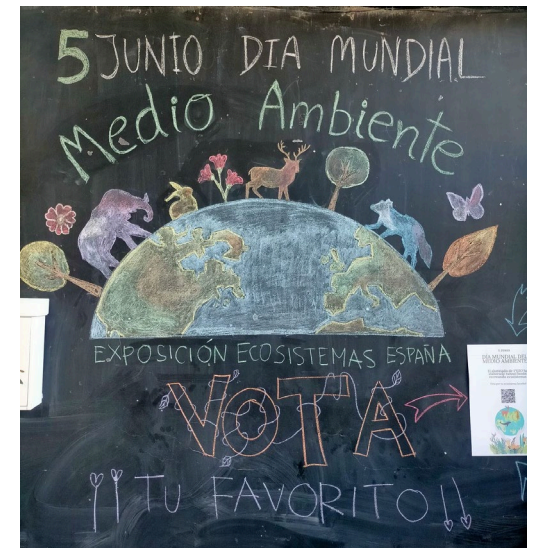 5 JUNIO DIA MUNDIAL
Medio Ambiente
EXPOSICIÓN ECOSISTEMAS ESPAÑA
VOTA
¡¡TU FAVORITO!!
DÍA MUNDIAL DEL
MEDIO AMBIENTE